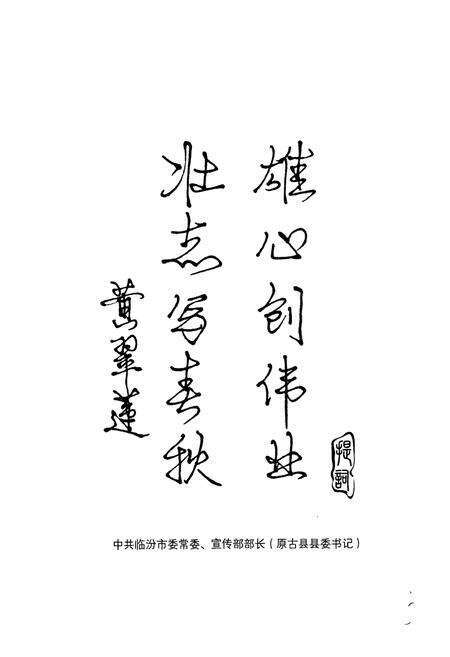 雄心创伟业
壮志写春秋
黄翠莲
提词
中共临汾市委常委、宣传部部长（原古县县委书记）